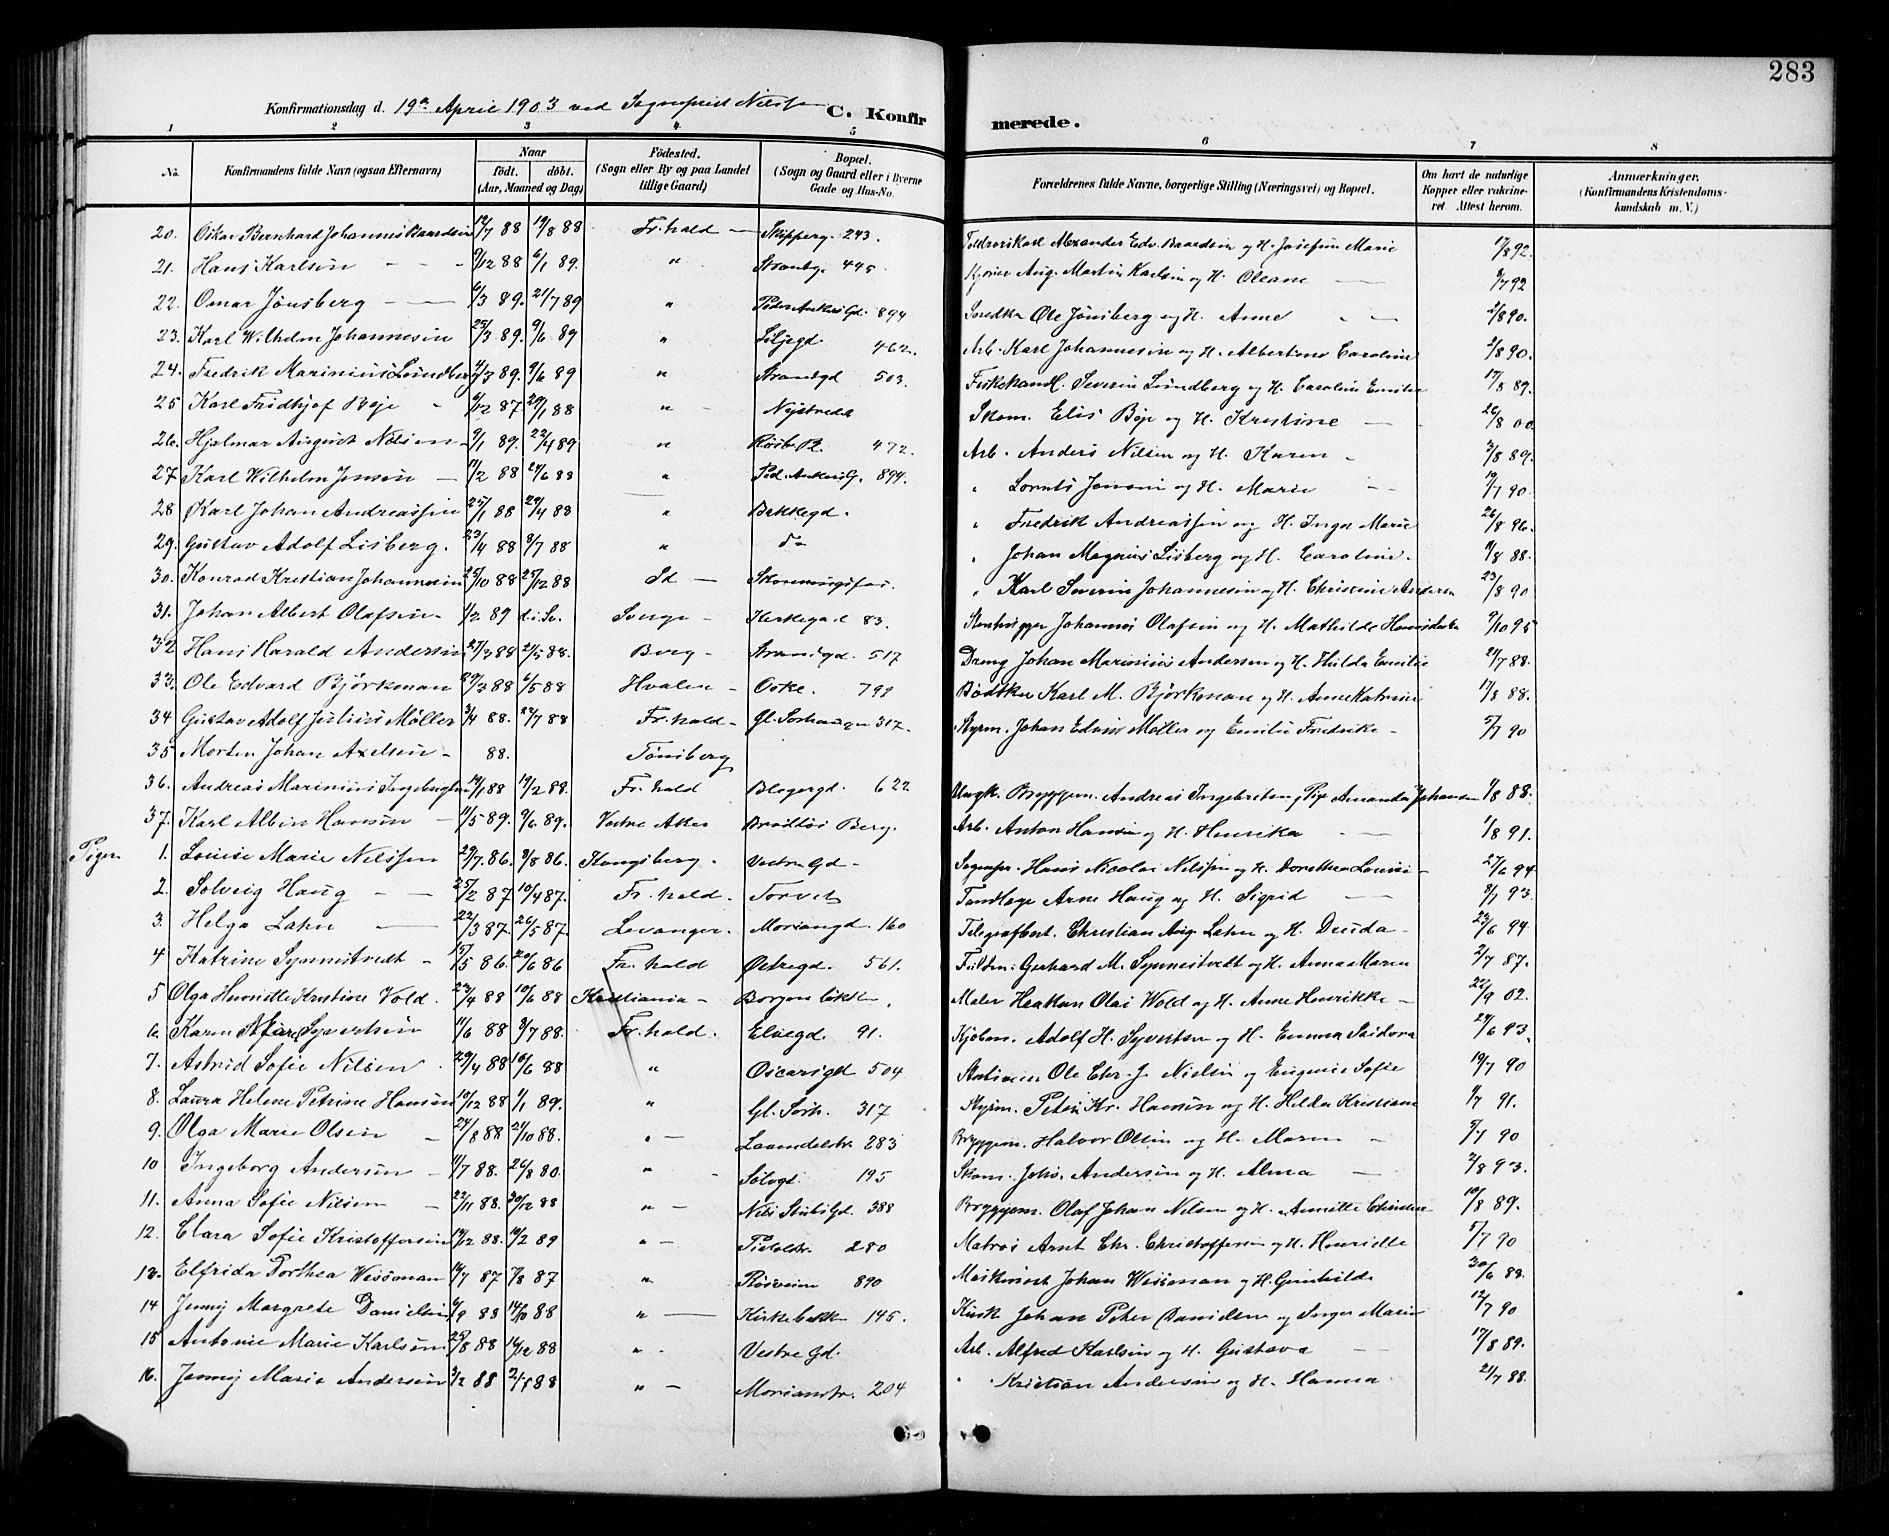 283
Konfirmationsdag d. 19de April 1903 ved Sognepræst Nilssen C. Konfirmerede.
1 2 3 4 5 6 7 8
No. Konfirmandens fulde Navn (ogsaa Efternavn) Naar födt. döbt. (Aar, Maaned og Dag) Födested. (Sogn eller By og paa Landet tillige Gaard) Bopæl. (Sogn og Gaard eller i Byerne Gade og Hus-No. Forældrenes fulde Navne, borgerlige Stilling (Næringsvei) og Bopæl. Om havt de naturlige Kopper eller vakcineret Attest herom. Anmærkninger. (Konfirmandens Kristendomskundskab m. V.)
20. Oskar Bernhard Johannes Baardsen 12/7 88 19/8 88 Fr.hald Skipperg. 243. Alexander Edv. Baardsen og H. Josefine Marie 17/8 92.
21. Hans Karlsen 9/12 88 6/1 89. " Strandg. 445. Aug. Martin Karlsen og H. Oleane 9/7 92
22. Omar Jönsberg 6/3 89. 21/7 89 " Peder Ankers Gd. 894 Snedker Ole Jönsberg og H. Anne 2/8 90.
23. Karl Wilhelm Johannesen 25/3 89. 9/6 89 " Liljegd. 462. Arb. Karl Johannesen og H. Albertine Caroline 2/8 90.
24. Fredrik Marinius Lundberg 2/3 89. 9/6 89 " Strandgd 503. Fiskehandl. Severin Lundberg og H. Caroline Emilie 17/8 89.
25 Karl Fridthjof Böje 9/12 87. 29/1 88 " Nystrede Skom. Elis Böje og H. Kristine 26/8 00.
26. Hjalmar August Nilsen 9/1 89. 22/4 89 " Røsbr. B. 472. Arb. Anders Nilsen og H. Karen 3/8 89.
27 Karl Wilhelm Jensen 11/2 88 24/6 88 " Ped. Ankers G. 894. " Lornts Jensen og H. Marie 19/7 90.
28 Karl Johan Andreassen 25/1 88 29/4 88 " Bakkegd. " Fredrik Andreassen og H. Inger Marie 26/8 96.
29. Gustav Adolf Lisberg. 23/4 88 8/7 88 " do " Johan Magnus Lisberg og H. Caroline. 9/8 88.
30. Konrad Kristian Johannesen 25/10 88 25/12 88 Id Skonningsfos. " Karl Severin Johannesen og H. Christine Andersen 23/8 90
31. Johan Albert Olafsen 1/2 89 d. i. Sv. Sverge Kirkegad 83. Stenhugger Johannes Olafsen og H. Mathilde Hansdatter 9/10 95
32 Hans Harald Andersen 27/3 88 21/5 88. Berg Strandgd. 517 Dreng Johan Marinius Andersen og H. Hilda Emilie 21/7 88.
33. Ole Edvard Björkman 29/3 88 6/5 88 Hvaler Oske. 799 Bödtker Karl M. Björkman og H. Anne Katrine 17/8 88.
34 Gustav Adolf Julius Möller 3/4 88. 22/7 88 Fr.hald Gl. Sorhaugn 317. Styrm. Johan Edvin Möller og Emilie Fredrike 5/7 90
35 Morten Johan Axelsen 88. Tönsberg
36. Andreas Marinius Ingebretsen 14/1 88 19/2 88. Fr.hald Blegergd. 622 Ungk. Bryggem. Andreas Ingebretsen, Pige Amanda Johansen 1/8 88.
37. Karl Albin Hansen 11/5 89. 9/6 89. Vestre Aker Brödlös Berg. Arb. Anton Hansen og H. Henrika 1/8 91.
Piger
1. Louise Marie Nilssen 29/7 86. 9/8 86. Kongsberg. Vestre Gd. Sognepr. Hans Nicolai Nilssen og H. Dorothea Louise 27/6 94
2. Solveig Haug 25/2 87 10/4 87. Fr.hald. Torvet Tandlæge Arne Haug og H. Sigrid 8/7 93.
3. Helga Lahn 22/3 87. 26/5 87. Levanger. Moriangd. 160 Telegrafbest. Christian Aug. Lahn og H. Deuda 23/6 94.
4 Katrine Synnestvedt 15/5 86. 20/6 86 Fr.hald Østregd. 561. Gerhard M. Synnestvedt og H. Anna Maren 2/7 87.
5 Olga Henriette Kristine Vold. 23/4 88 10/6 88 Kristiania Borgerløkken. Maler Heakon Olai Wold og H. Anne Henrikke 22/9 02.
6 Karen Marie Syvertsen 11/6 88 9/7 88. Fr.hald. Elvegd. 91. Kjöbm. Adolf H. Syvertsen og H. Emma Isidora 24/6 93.
7. Astrid Sofie Nilsen 29/4 88 10/6 88 " Oscarsgd 504 Ole Chr. J. Nielsen og Eugenie Sofie 19/7 90
8. Laura Helene Petrine Hansen 10/12 88 1/1 89. " Gl. Sorh. 317 Styrm. Peter Kr. Hansen og H. Hilda Kristiane 1/7 91.
9. Olga Marie Olsen 24/8 88 21/10 88. " Laandelstr. 283 Bryggem. Halvor Olsen og H. Maren 5/7 90
10 Ingeborg Andersen 11/7 88. 26/8 80. " Solvgd. 195 Skom. Johs. Andersen og H. Alma 2/8 93.
11. Anna Sofie Nilsen 22/11 88. 30/12 88 " Nils Stubs Gd. 388 Bryggem. Olaf Johan Nilsen og H. Annette Christine 10/8 89.
12. Clara Sofie Kristoffersen 14/12 88. 10/2 89 " 280 Matros Arnt Chr. Christoffersen og H. Henriette 5/7 90
13. Elfrida Dorthea Wessman 14/7 87 7/8 87 " Røsveien 890 Maskinist Johan Wessman og H. Gunhilde 30/6 88.
14 Jenny Margrete Danielsen 6/9 88 14/10 88 " Kirkebakk 145. Kusk Johan Peter Danielsen og Inger Marie 12/7 90
15 Antonie Marie Karlsen 25/8 88 16/12 88 " Vestre Gd. Arb. Alfred Karlsen og H. Gustava 17/8 89.
16. Jenny Marie Andersen 3/2 88 2/4 88 " Morianstr. 204 " Kristian Andersen og H. Hanna. 21/7 88.